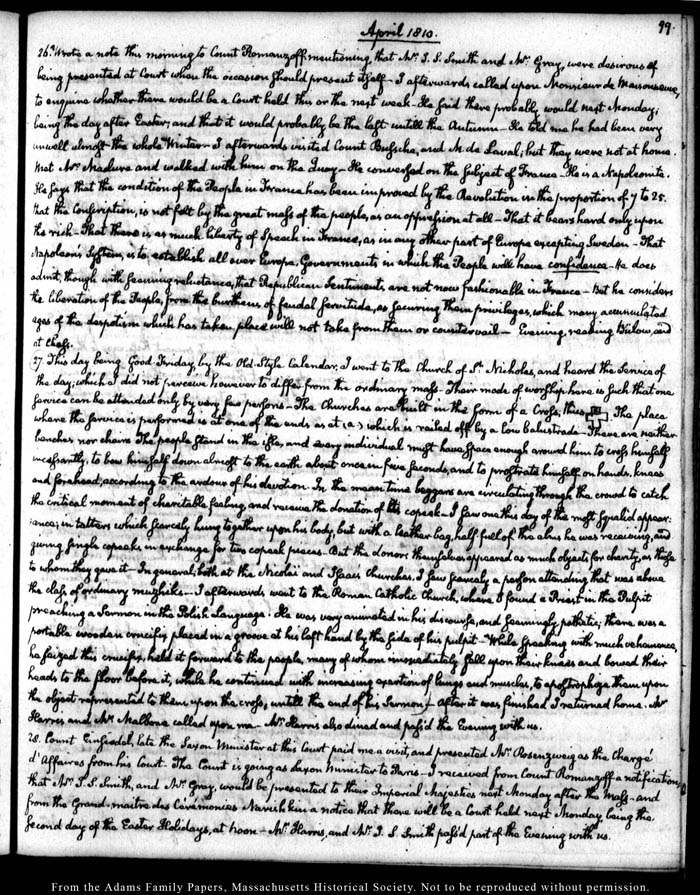 99.
April 1810.
26. Wrote a note this morning to Count Romanzoff mentioning, that Mr. J. S. Smith and Mr. Gray, were desirous of
being presented at Court when the occasion should present itself — I afterwards called upon Monsieur de Maisonneuve,
to enquire whether there would be a Court held this or the next week — He said there probably would next Monday;
being the day after Easter; and that it would probably be the last untill the Autumn — He told me he had been very
unwell almost the whole Winter — I afterwards visited Count Bussche, and M. de Laval; but they were not at home.
Met Mr. Madura and walked with him on the Quay — He conversed on the subject of France — He is a Napoleonite.
He says that the condition of the People in France has been improved by the Revolution in the proportion of 7 to 25.
that the Conscription, is not felt by the great mass of the people, as an oppression at all — That it bears hard only upon
the rich — That there is as much liberty of Speech in France, as in any other part of Europe excepting Sweden — That
Napoleon's System, is to establish all over Europe, Governments in which the People will have confidence — He does
admit, though with seeming reluctance, that Republican Sentiments are not now fashionable in France — But he considers
the liberation of the People, from the burthens of feudal servitude, as securing them privileges, which many accumulated
ages of the despotism which has taken place will not take from them or countervail — Evening, reading Bülow, and
at Chess.
27. This day being Good Friday, by the Old-Style Calendar, I went to the Church of St. Nicholas, and heard the service of
the day; which I did not perceive however to differ from the ordinary mass — Their mode of worship here is such that one
service can be attended only by very few persons — The Churches are built in the form of a Cross, thus The place
where the service is performed is at one of the ends as at (a) which is railed off by a low balustrade — There are neither
benches nor chairs. The people stand in the isle, and every individual must have space enough around him to cross himself
incessantly, to bow himself down almost to the earth about once in five seconds, and to prostrate himself on hands, knees
and forehead, according to the ardour of his devotion. In the mean time beggars are circulating through the crowd to catch
the critical moment of charitable feeling, and receive the donation of its copeck — I saw one this day of the most squalid appear-
ance; in tatters which scarcely hung together upon his body, but with a leather bag, half full of the alms he was receiving, and
giving single copecks in exchange for two copeck pieces. But the donors themselves appeared as much objects for charity, as those
to whom they gave it — In general, both at the Nicolai and Isaac's Churches, I saw scarcely a person attending that was above
the class of ordinary mujhiks — I afterwards went to the Roman Catholic Church, where I found a Priest in the Pulpit
preaching a Sermon in the Polish Language. He was very animated in his discourse, and seemingly pathetic; there was a
portable wooden crucifix placed in a groove at his left hand by the side of his pulpit — While speaking with much vehemence,
he seized this crucifix, held it forward to the people, many of whom immediately fell upon their knees and bowed their
heads to the floor before it, while he continued with increasing exertion of lungs and muscles, to apostrophize them upon
the object represented to them upon the cross, untill the end of his Sermon — After it was finished I returned home. Mr.
Harris and Mr. Malbone called upon me — Mr. Harris also dined and pass'd the Evening with us.
28. Count Einsiedel, late the Saxon Minister at this Court paid me a visit, and presented Mr. Rosenzweig as the Chargé
d'Affaires from his Court. The Count is going as Saxon Minister to Paris — I received from Count Romanzoff a notification,
that Mr. J. S. Smith, and Mr. Gray, would be presented to their Imperial Majesties next Monday after the Mass — and
from the Grand-maitre des Cérémonies Narishkin a notice that there will be a Court held next Monday, being the
second day of the Easter Holidays, at Noon — Mr. Harris, and Mr. J. S. Smith pass'd part of the Evening with us.
From the Adams Family Papers, Massachusetts Historical Society. Not to be reproduced without permission.